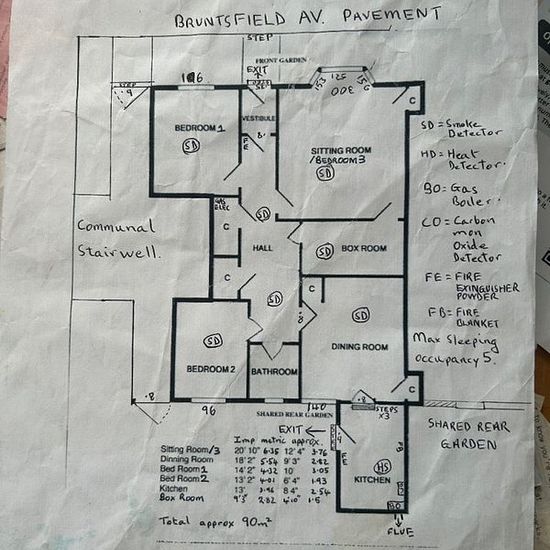 BRUNTSFIELD AV. PAVEMENT
STEP
FRONT GARDEN
EXIT
STEP
9
VESTIBULE
8
FE
BEDROOM 1
SD
153 125 156
300
C
SITTING ROOM
/BEDROOM 3
SD
SD = Smoke
Detector
HD = Heat
Detector.
BO = Gas
Boiler.
CO = Carbon
mon
Oxide
Detector
FE = FIRE
EXINGUISHER
POWDER
FB = FIRE
BLANKET
Max Sleeping
occupancy 5.
GAS
ELEC
C
SD
Communal
Stairwell.
HALL
SD
BOX ROOM
C
SD
C
.8
SD
DINING ROOM
SD
BEDROOM 2
BATHROOM
C
.8
96
140
.8
STEPS
x3
SHARED REAR GARDEN
SHARED REAR
GARDEN
EXIT
FE
FB
HS
KITCHEN
BO
FLUE
Imp metric approx.
Sitting Room/3 20' 10" 6.35 12' 4" 3.76
Dinning Room 18' 2" 5.54 9' 3" 2.82
Bed Room 1 14' 2" 4.32 10' 3.05
Bed Room 2 13' 2" 4.01 6' 4" 1.93
Kitchen 13' 3.96 8' 4" 2.54
Box Room 9'3" 2.82 4'10" 1.5
Total approx 90m²